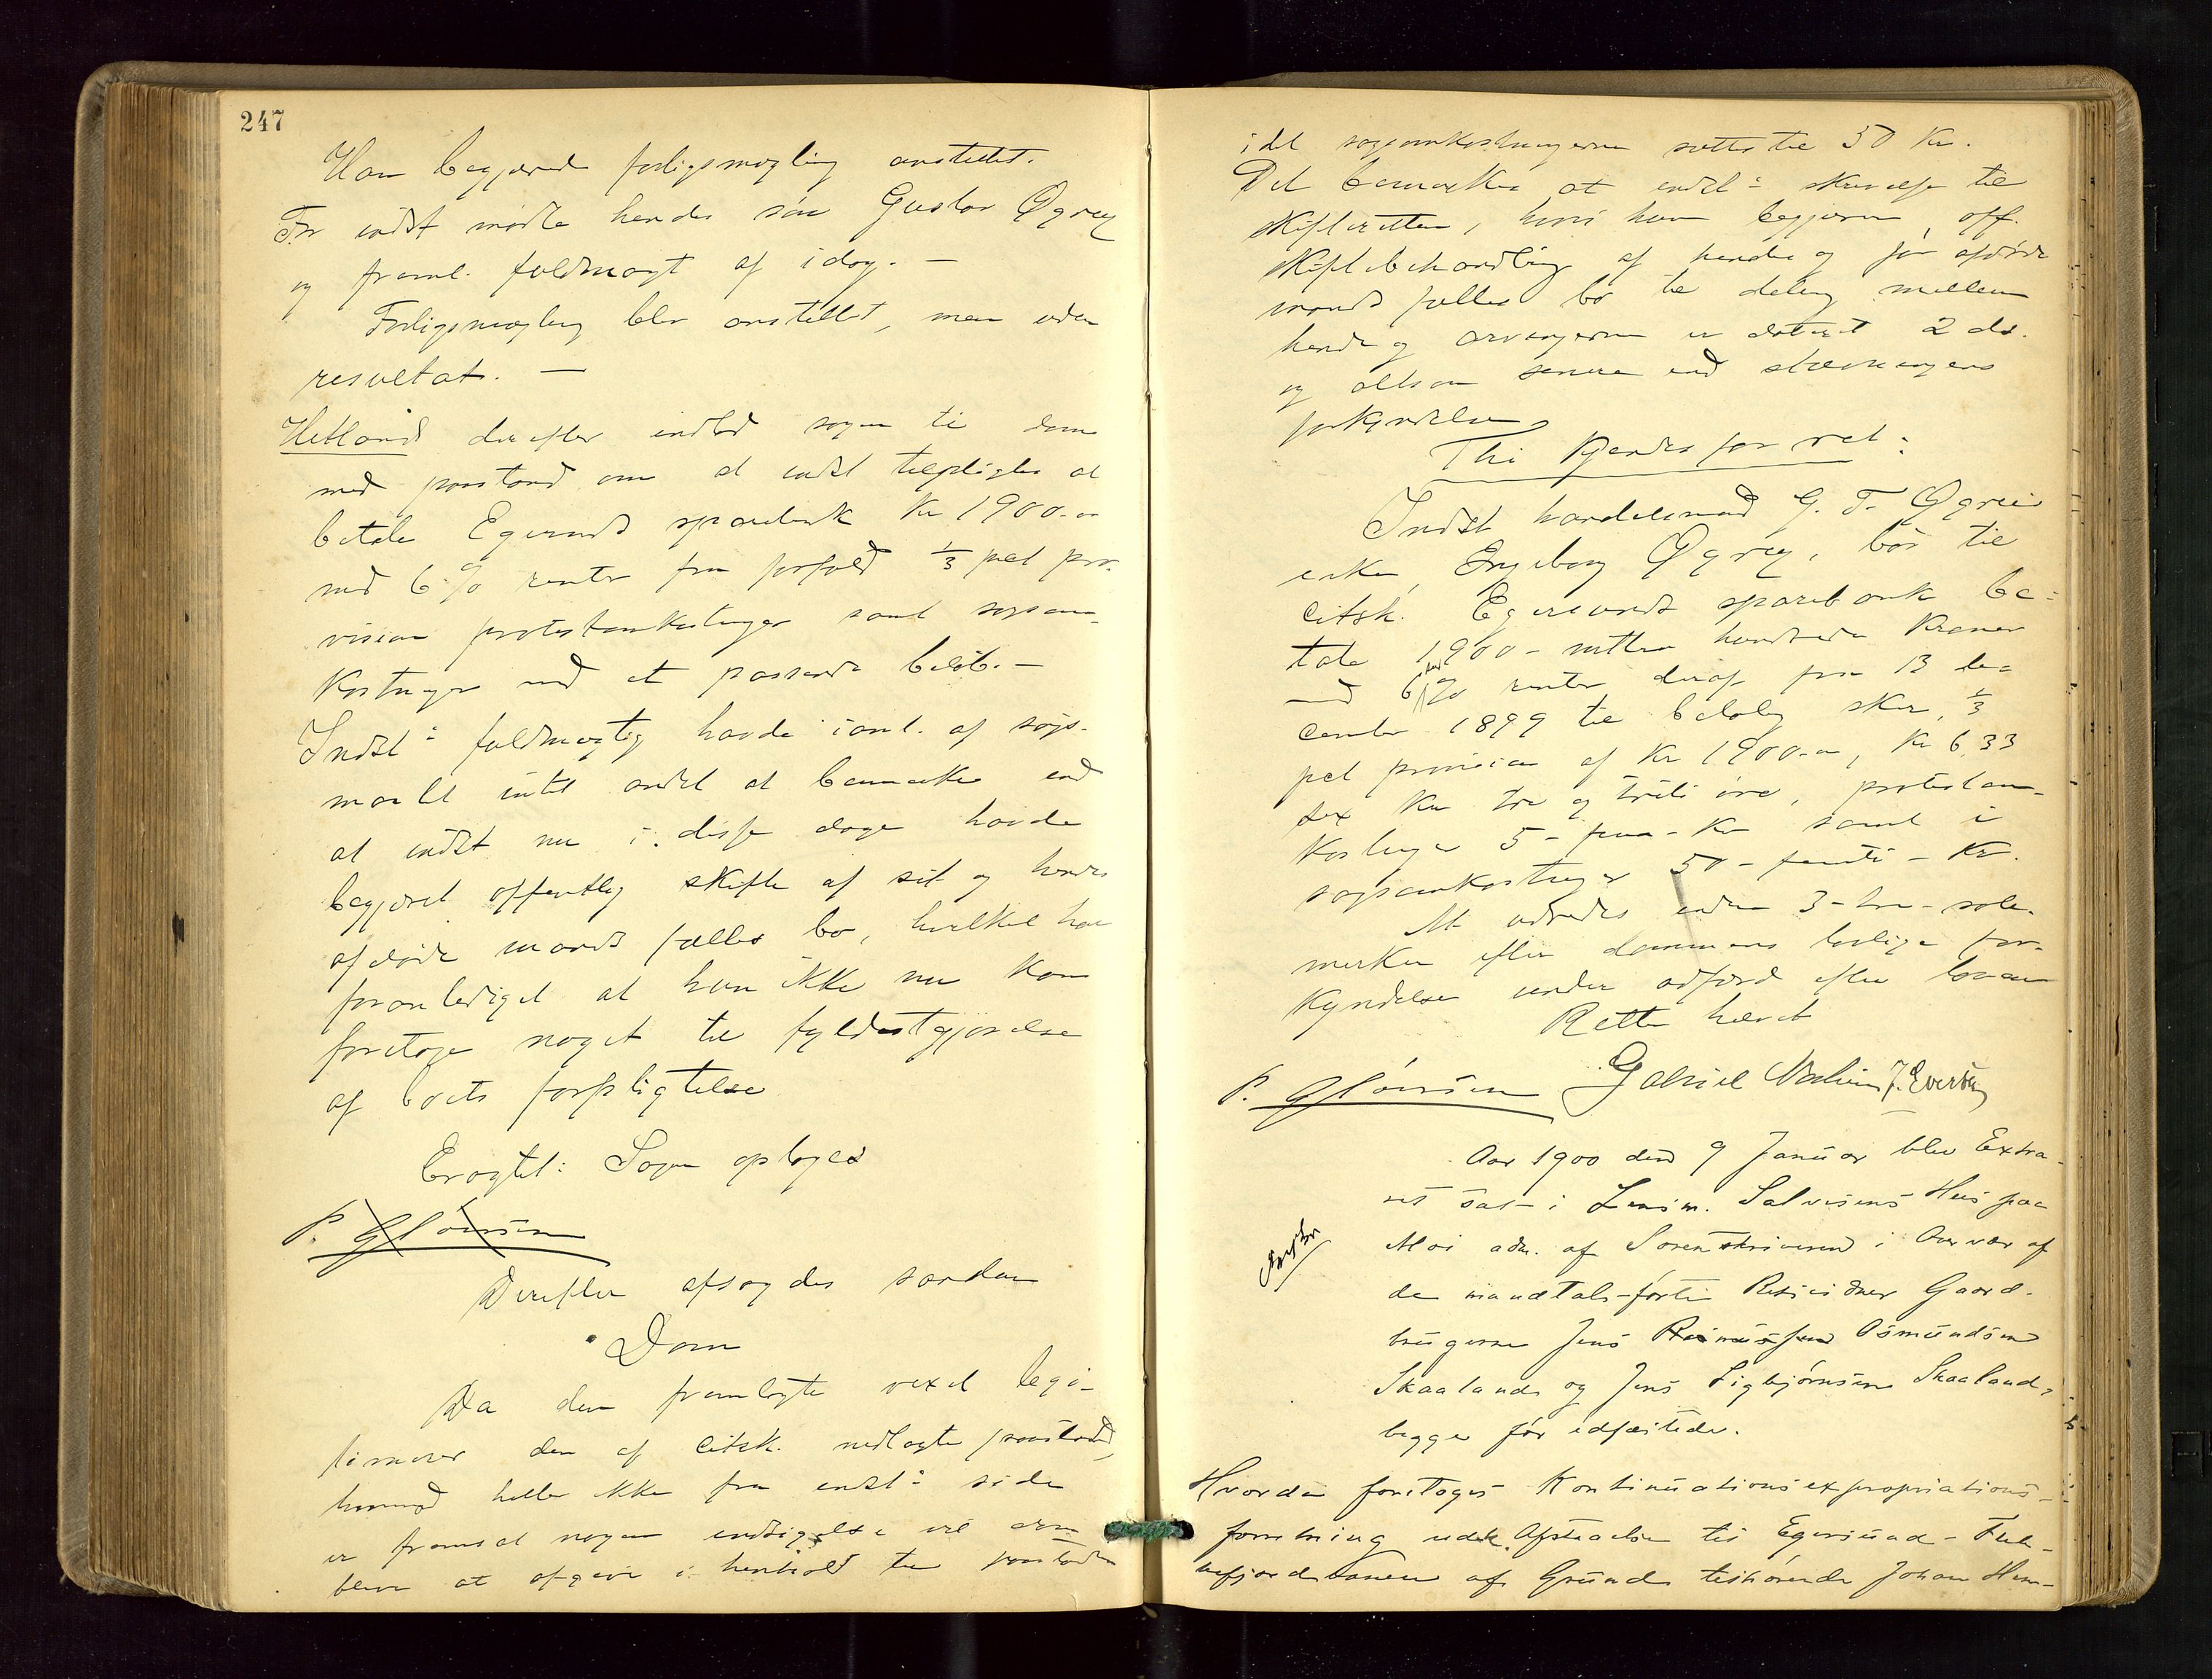 247
Han begjærede forligsmægling anstillet.
For indst mødte hendes søn Gustav Øgrey
og freml. fuldmagt af idag. —
Forligsmægling blev anstillet, men uden
resultat. —
Hetland derefter indlod sagen til dom
med paastand om at indst tilpligtes at
betale Egersunds sparebank Kr 1900.00
med 6% renter fra forfald 1/3 pct pro-
vision protestomkostninger samt sagsom-
kostninger med et passende beløb. —
Indst's fuldmægtig havde i anl. af søgs-
maalet intet andet at bemærke end
at indst nu i disse dage havde
begjæret offentlig skifte af sit og hendes
afdøde mands fælles bo, hvilket har
foranlediget at hun ikke nu kan
foretage noget til fyldestgjørelse
af boets forpligtelse
Eragtet: Sagen optages
P.
Derefter afsagdes saadan
Dom
Da den fremlagte vexel legi-
timerer den af citsk. nedlagte paastand,
hvormod heller ikke fra indst's side
er fremsat nogen indsigelse vil dom
blive at afgive i henhold til paastanden
idet sagsomkostningerne sættes til 50 Kr.
Det bemærkes at indst's skrivelse til
skifteretten, hvori hun begjærer off.
skiftebehandling af hendes og før afdøde
mands fælles bo til deling mellem
hende og arvingerne er dateret 2 ds.
og altsaa senere end stævningens
forkyndelse
Thi kjendes for ret:
Indst handelsmand G. T. Øgreis
enke, Ingeborg Øgrey, bør til
citsk. Egersunds sparebank be-
tale 1900 - nitten hundrede Kroner
med 6 % renter deraf fra 13 de-
cember 1899 til betaling sker, 1/3
pct provision af Kr 1900.00, Kr 6,33
sex Kr tre og treti øre, protestom-
kostninger 5 - fem - Kr samt i
sagsomkostninger 50 - femti - Kr.
At udredes inden 3 - tre - sole-
merker efter dommens lovlige for-
kyndelse under adfærd efter loven
Retten hævet
P. Gabriel J. Evertsen
Aar 1900 den 9 Januar blev Extra-
ret sat i Lensm. Salvesens Hus paa
Moi adm. af Sorenskriveren i Overvær af
de mandtals-førte Retsvidner Gaard-
brugerne Jens Rasmussen Osmundsen
Skaaland og Jens Sigbjørnsen Skaaland,
begge før edfæstede.
Hvorda foretoges Kontinuationsexpropriations-
forretning Afstaaelse til Egersund-Flek-
kefjordbanen af Grund tilhørende Johan Hem-